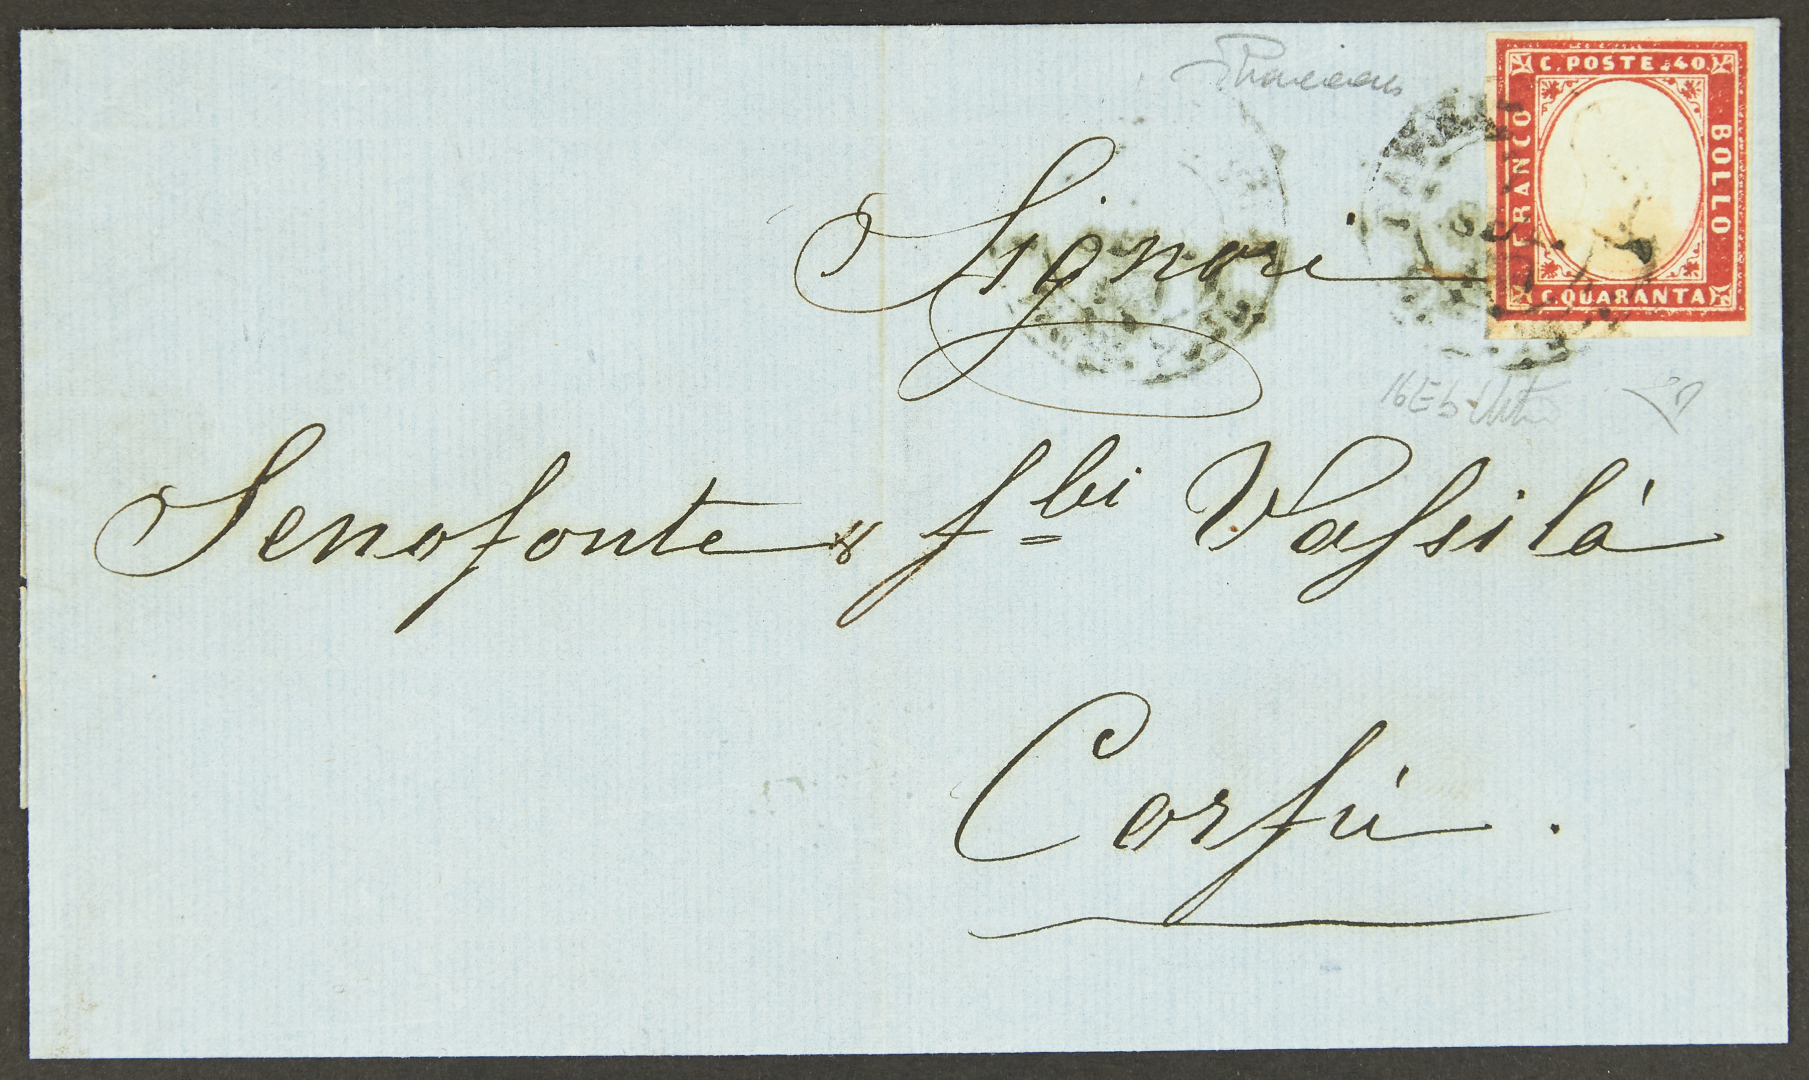 C. POSTE. 40.
FRANCO
BOLLO
C. QUARANTA
Signori
Senofonte & f.lli Vassilà
Corfù.
16Eb